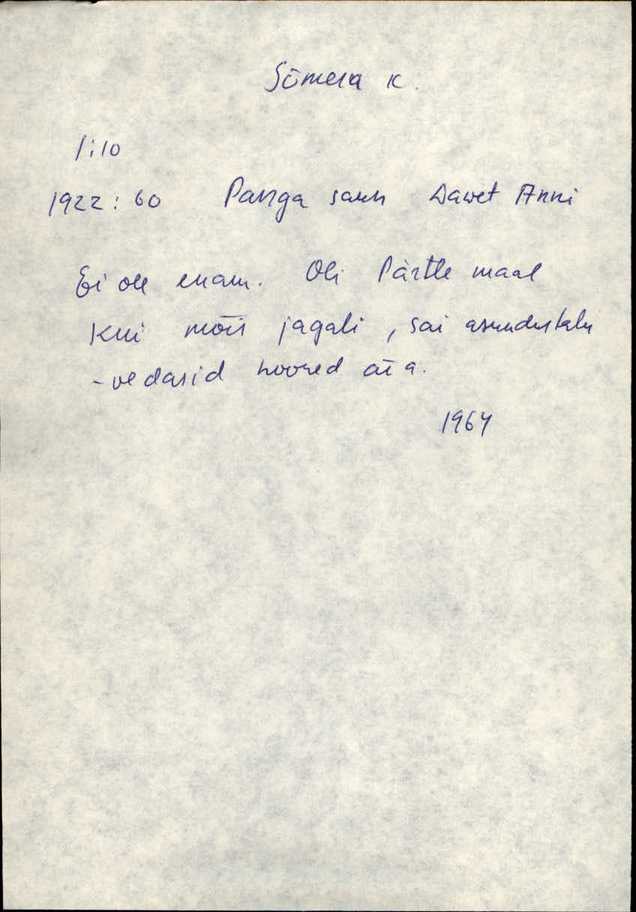 Sõmera k.
1:10
1922: 60 Panga saun Dawet Anni
Ei ole enam. Oli Pärtle maal
Kui mõis jagati, sai asundustalu
- vedasid hooned ära.
1964